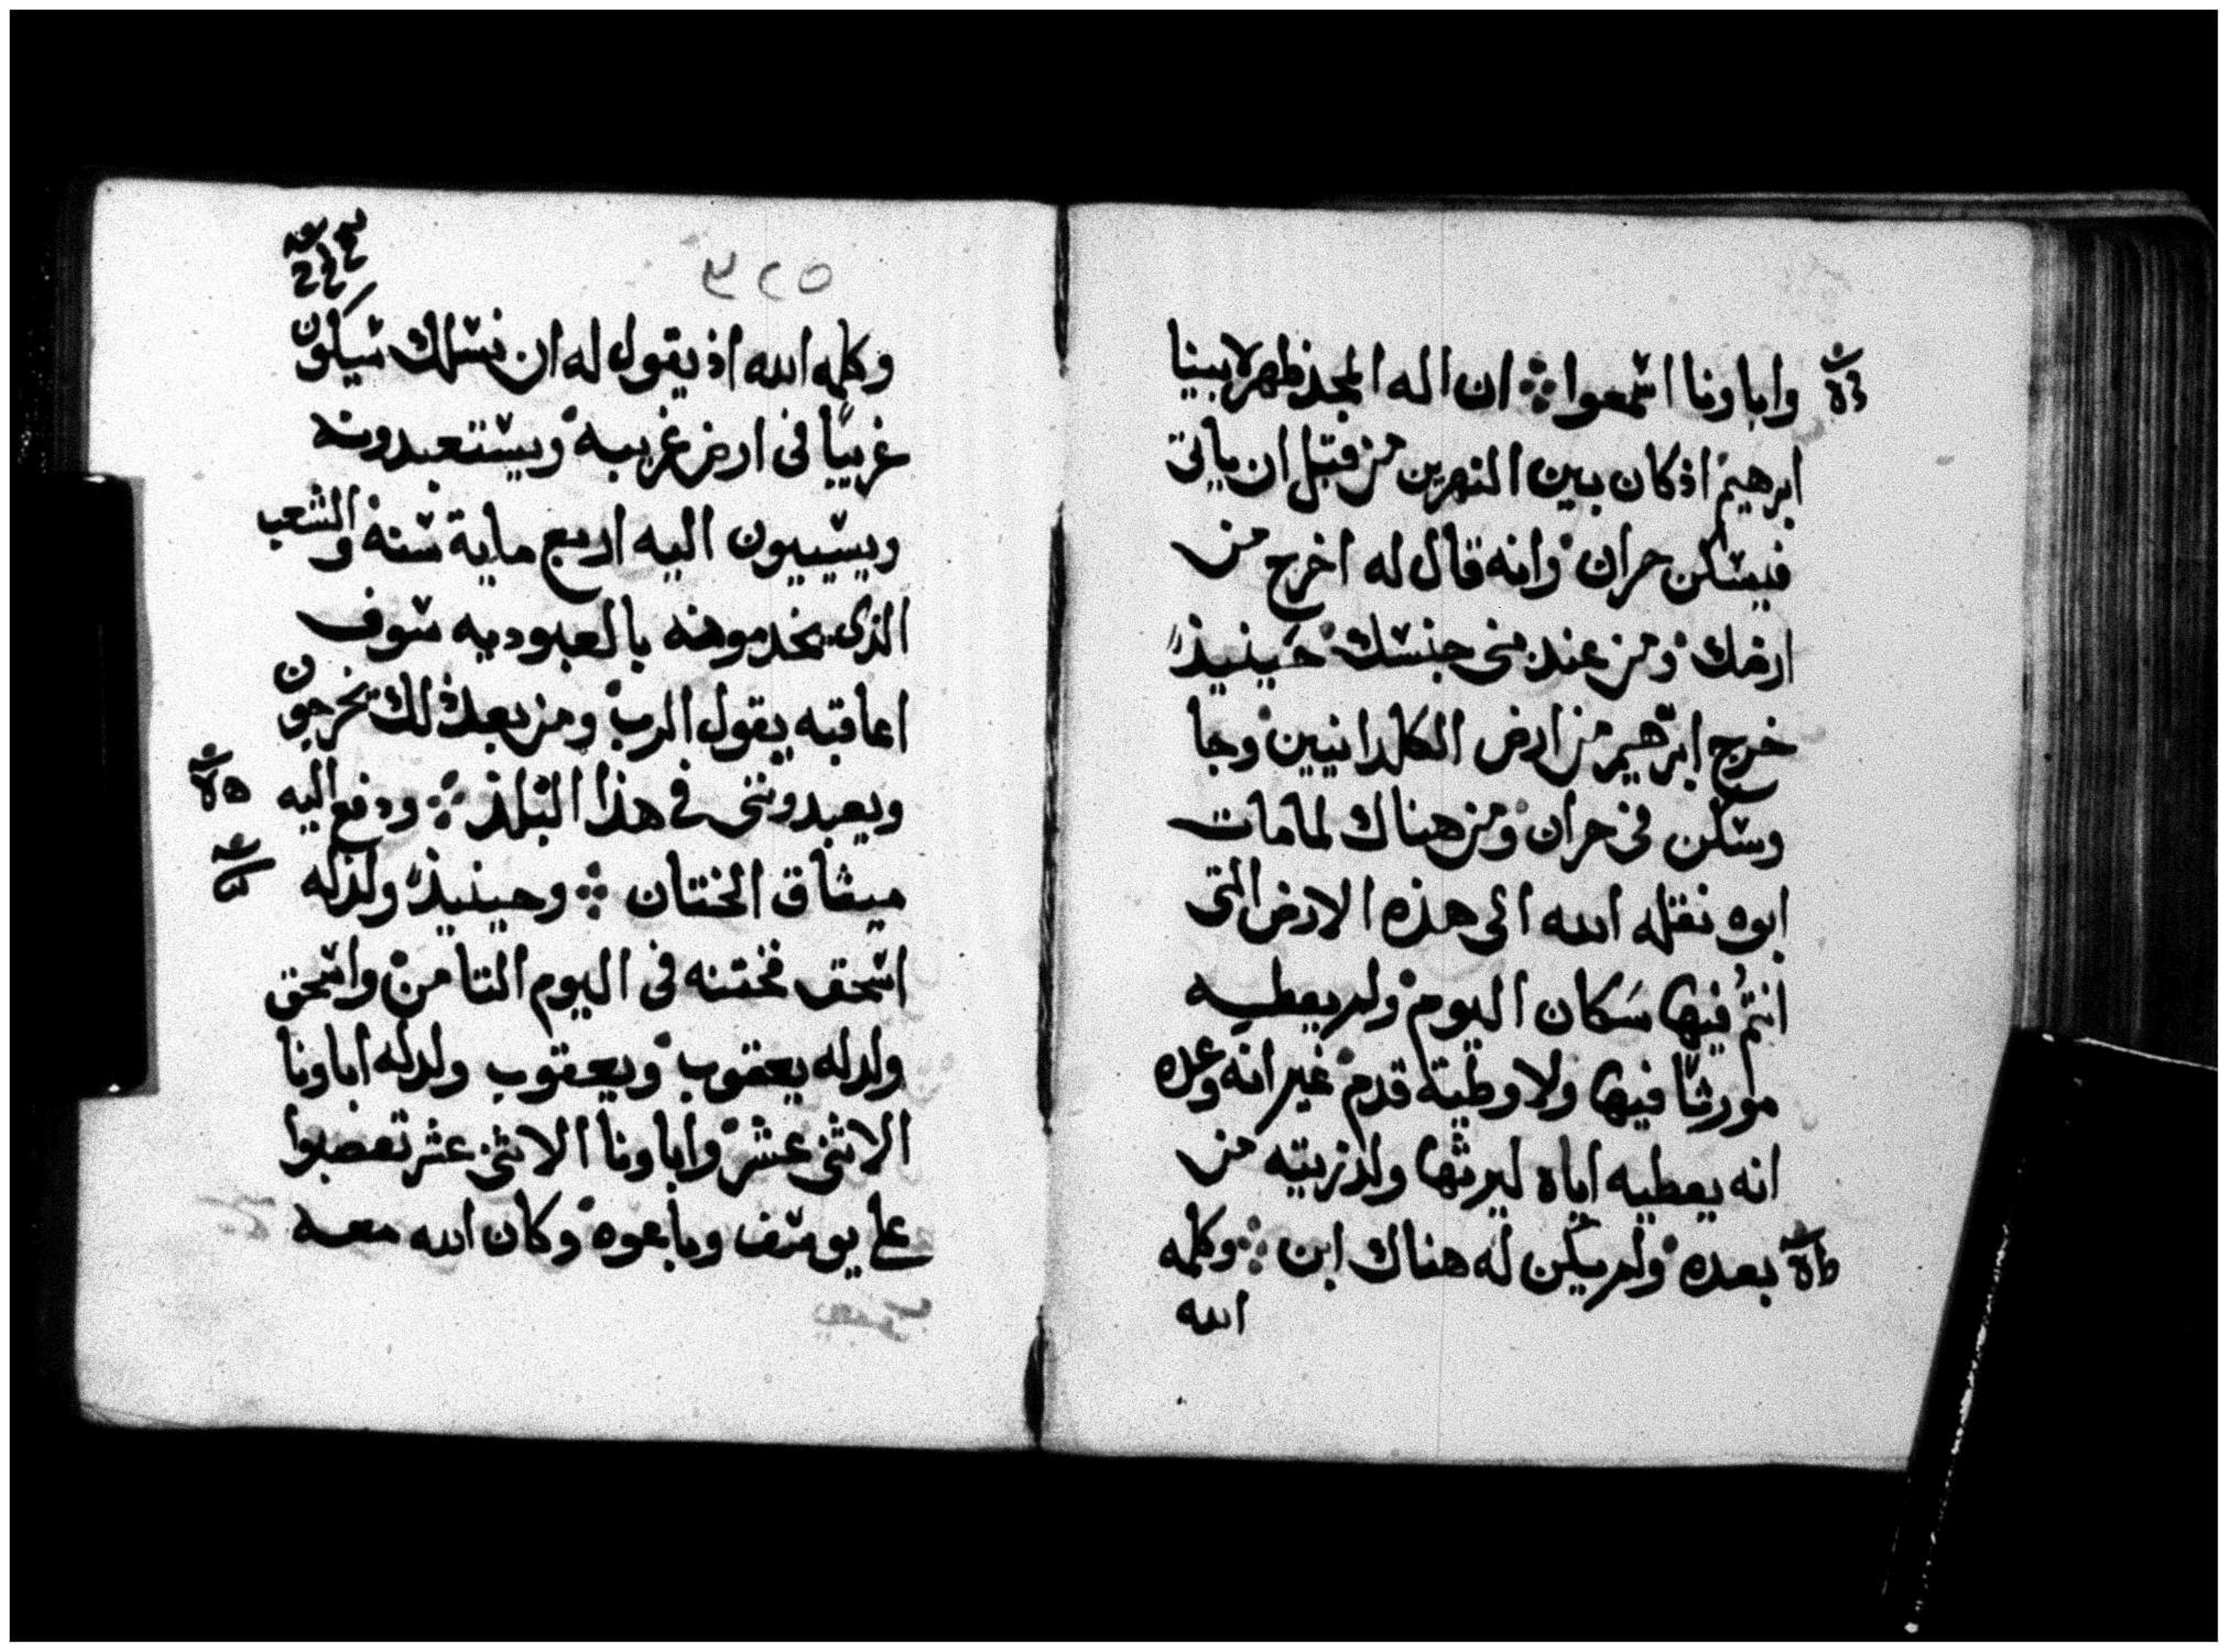 وابا ونا اسمعوا ۞ ان اله المجد ظهر لابينا
ابرهيم اذ كان بين النهرين من قبل ان ياتى
فيسكن حران وانه قال له اخرج من
ارضك ومن عند بنى جنسك حينيذ
خرج ابرهيم من ارض الكلدانيين وجا
وسكن فى حران ومن هناك لما مات
ابوه نقله الله الى هذه الارض التى
انتم فيها سكان اليوم ولم يعطيه
مورثا فيها ولا وطية قدم غير انه وعده
انه يعطيه اياه ليرثها ولذريته من
بعده ولم يكن له هناك ابن ۞ وكلمه
الله
٣٢٥
وكلمه الله اذ يقول له ان نسلك سيكون
غريبًا فى ارض غريبه ويستعبدونه
ويسييون اليه اربع ماية سنة والشعب
الذى يخدمونه بالعبوديه سوف
اعاقبه يقول الرب ومن بعد ذلك يخرجون
ويعبدوننى فى هذا البلد ۞ ودفع اليه
ميثاق الختان ۞ وحينيذ ولد له
اسحق فختنه فى اليوم الثامن واسحق
ولد له يعقوب ويعقوب ولد له اباونا
الاثنى عشر واباونا الاثنى عشر تعصبوا
على يوسف وباعوه وكان الله معه